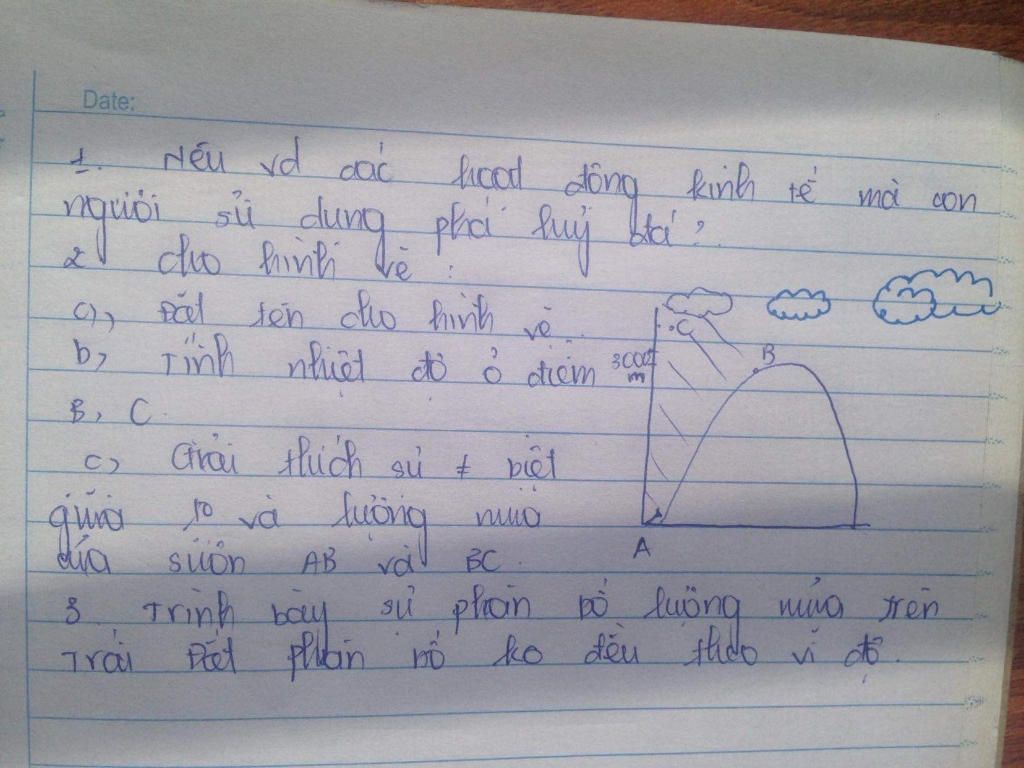 Date:
1. Nêu vd các hoạt động kinh tế mà con
người sử dụng phá huỷ đá?
2 cho hình vẽ :
a), Đặt tên cho hình vẽ.
b, Tính nhiệt độ ở điểm
B, C
c, Giải thích sự ≠ biệt
giữa to và lượng mưa
của sườn AB và BC.
3000
m
C
B
A
3 Trình bày sự phân bố lượng mưa trên
Trái Đất phân bố ko đều theo vĩ độ.